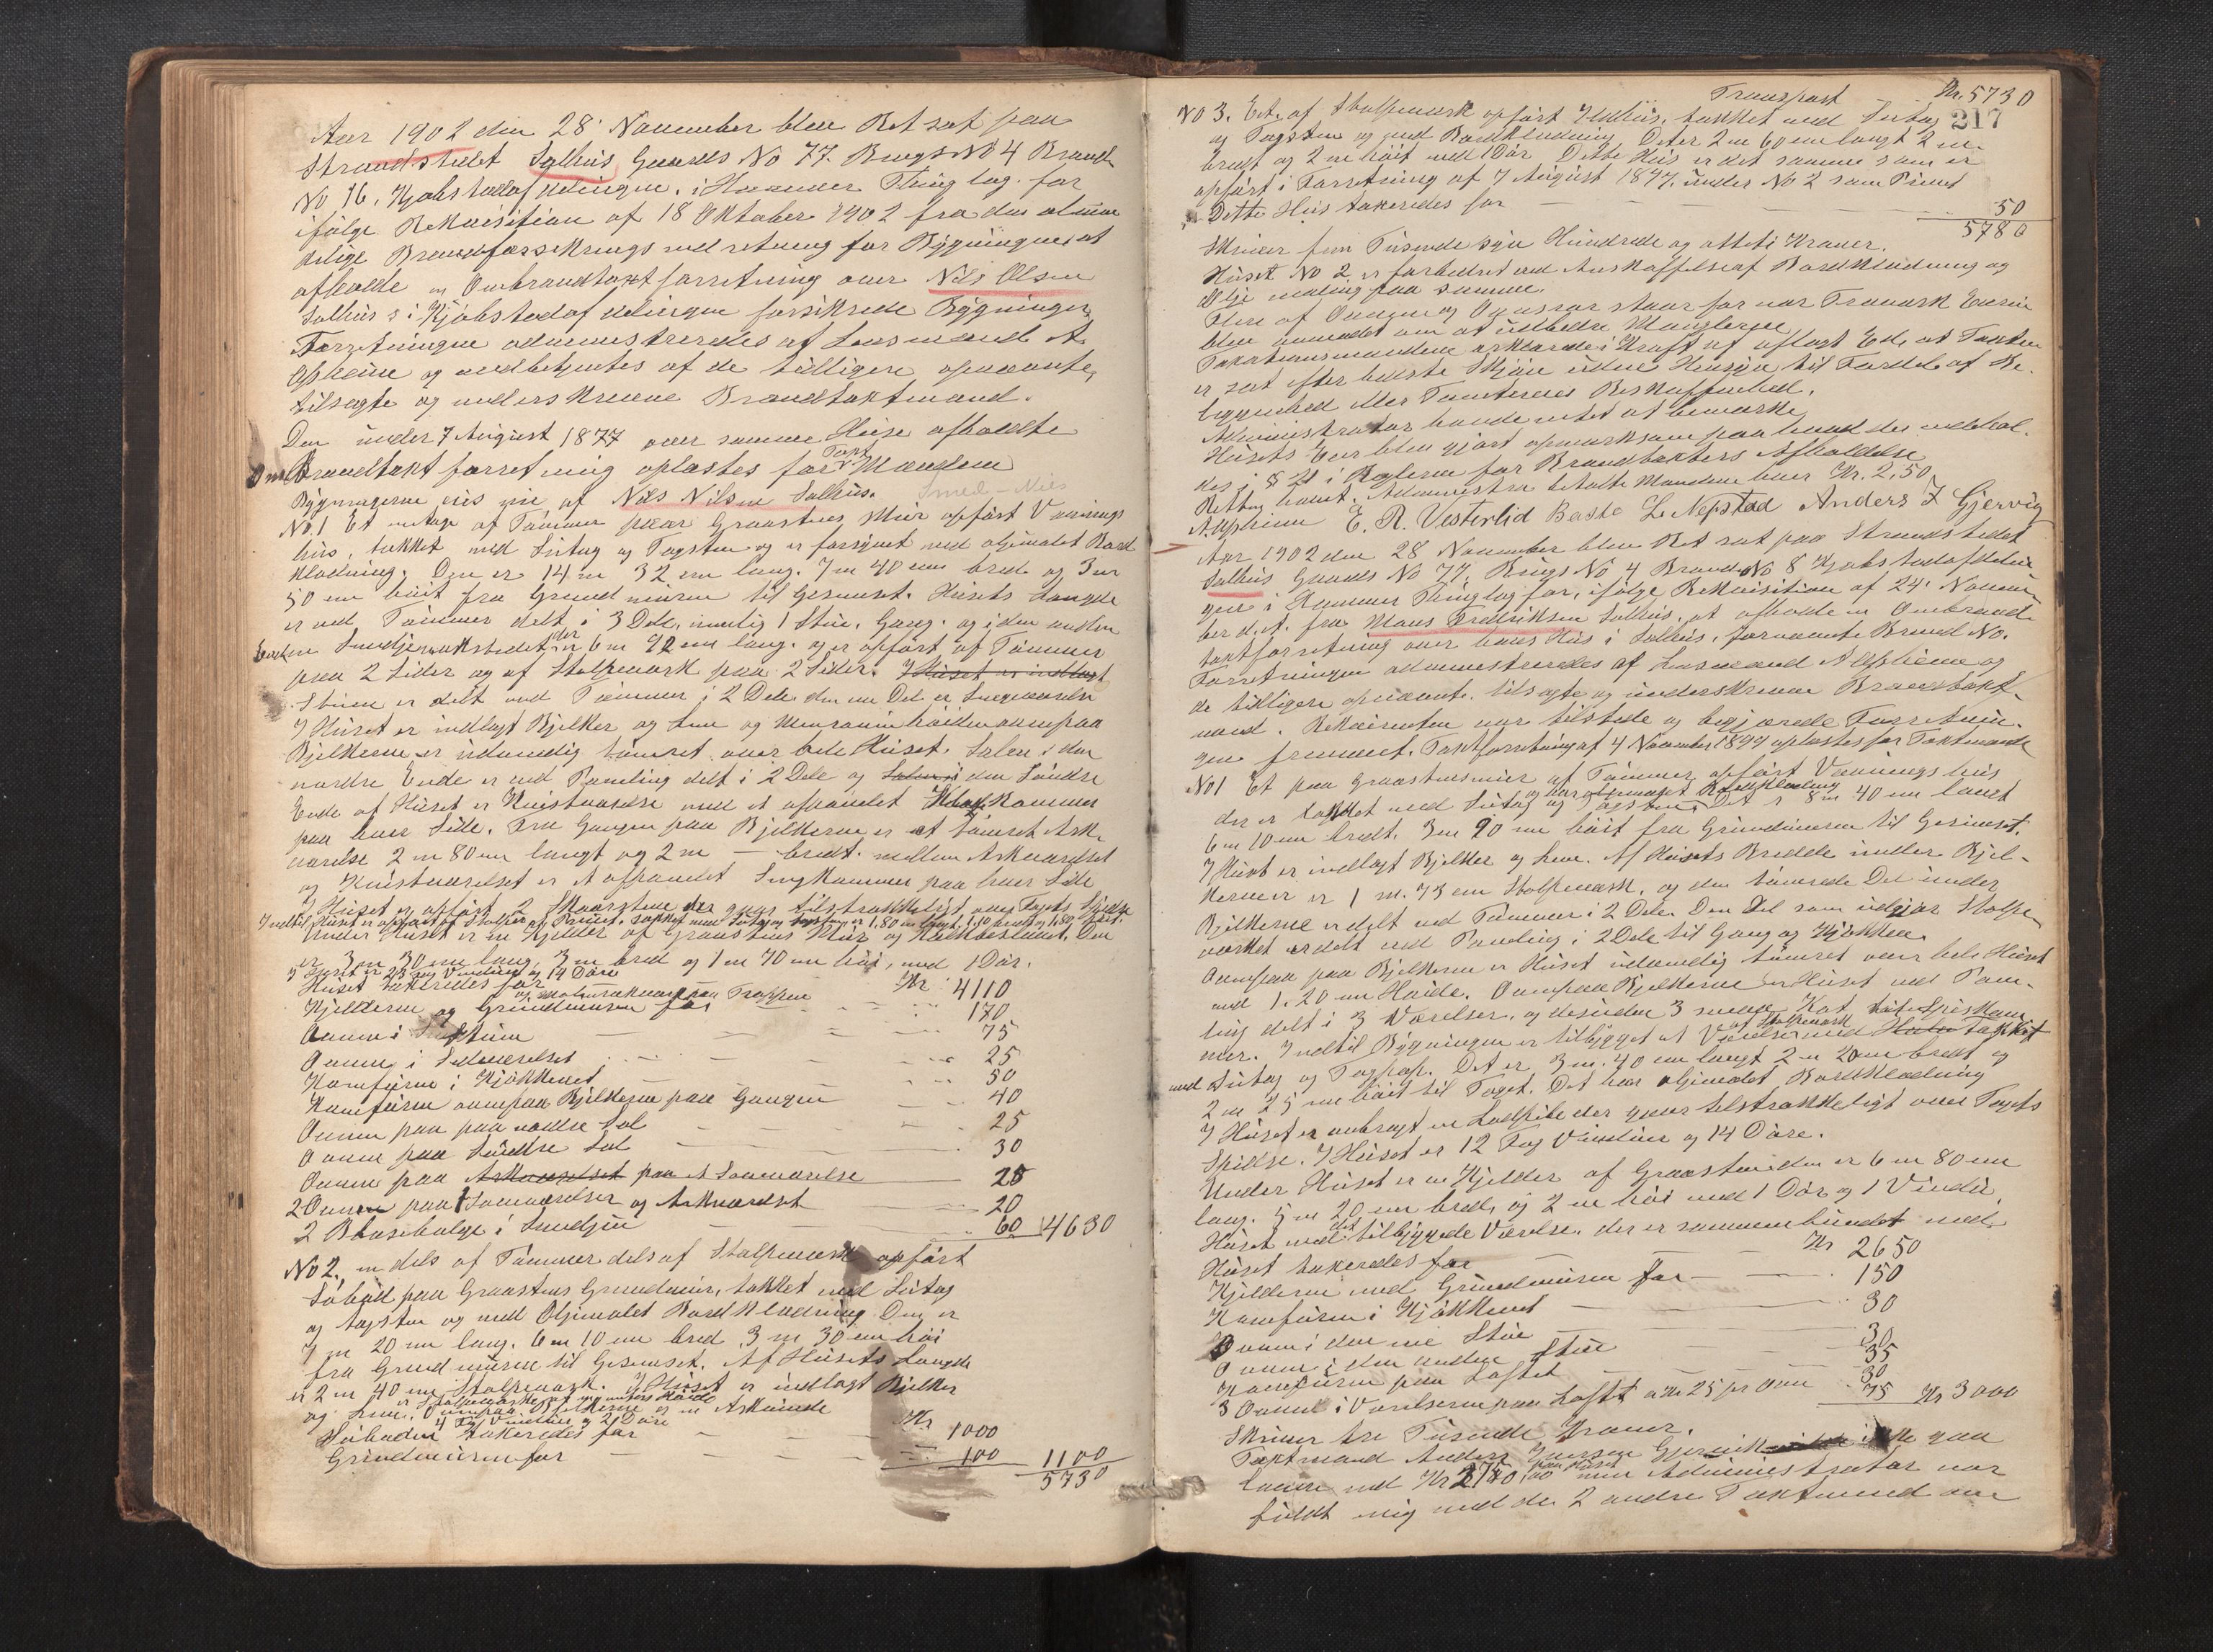 Aar 1902 den 28' November blev Ret sat paa
Strandstedet Salhus Gaards No 77. Brugs No 4 Brand
No 16, Kjøbstadafdelingen, i Hammer Thinglag for
ifølge Rekvisition af 18 Oktober 1902 fra den almin
delige Brandforsikringsindretning for Bygninger at
afholde en Ombrandtaxtforretning over Nils Olsen
Salhus's i Kjøbstadafdelingen forsikrede Bygninger
Forretningen administreredes af Lensmand A.
Apheim og medbetjentes af de tidligere opnævnte,
tilsagte og underskrevne Brandtaxtmænd.
Den under 7 August 1877 over samme Huse afholdte
Om Brandtaxtforretning oplæstes for Taxt Mændene
Bygningerne eies nu af Nils Nilsen Salhus. Smed-Nils
No. 1 Et en etage af Tømmer paa Graastens Mur opført Vaanings
hus, tækket med Sutag og Tagsten og er forsynet med oljemalet Bord
klædning. Den er 14 m 32 cm lang. 7 m 40 cm bred og 3 m
50 cm høit fra Grundmuren til Gesimset. Husets Længde
er ved Tømmer delt i 3 Dele, nemlig 1 Stue, Gang, og i den anden
Ende en Smedjeværkstedet der er 6 m 92 cm lang. og er opført af Tømmer
paa 2 Sider og af Stolpeværk paa 2 Sider. I Huset er indlagt
Stuen er delt ved Tømmer i 2 Dele den ene Del er Sengeværelse
I Huset er indlagt Bjelker og Lem og
Bjelkerne er udvendig tømret over hele Huset. Salen i den
nordre Ende er ved Paneling delt i 2 Dele og Salen i den Søndre
Ende af Huset er Kvistværelse med et afpanelet Klædkammer
paa hver Side. Fra Gangen paa Bjelkerne er et tømret Ark
værelse 2 m 80 cm langt og 2 m — bredt. mellem Arkværelset
og Kvistværelset er et afpanelet Sengkammer paa hver Side
I Huset er opført 2 Skorstene der gaar tilstrækkeligt over Tagets Spidse
Indtil Huset er opført af Stolper et Privet, tækket med Sutag og Tagsten er 1,80 m langt, 1,10 bredt og 1,80 høit.
Under Huset er en Kjelder af Graastens Mur og Kalkbeslaaet. Den
er 3 m 30 cm lang, 3 m bred og 1 m 70 cm høi, med 1 Dør.
I Huset er 23 Fag Vinduer og 14 Døre
Huset taxeredes for Kr 4110
Kjelderen og Grundmuren for 170
Ovnen i Stuen 75
Ovnen i Sideværelset 25
Komfuren i Kjøkkenet 50
Komfuren ovenpaa Bjelkerne paa Gangen 40
Ovnen paa paa nordre Sal 25
Ovnen paa Søndre Sal 30
Ovnen paa Arkværelset paa et Soveværelse 25
2 Ovnen paa 1 Soveværelser og Arkværelset 20
2 Blæsebælge i Smedjen 60 4630
No 2. en dels af Tømmer dels af Stolpeværk opført
Søbod paa Graastens Grundmur, tækket med Sutag
og tagsten og med Oljemalet Bordklædning Den er
7 m 20 cm lang. 6 m 10 cm bred 3 m 30 cm høi
fra Grundmuren til Gesimset. Af Husets Længde
er 2 m 40 cm Stolpeværk. I Huset er indlagt Bjelker
og Lem. Ovenpaa Bjelkerne er en Arkvinde
4 Fag Vinduer og 2 Døre
Søboden taxeredes for Kr 1000
Grundmuren for 100 1100
5730
Transport Kr. 5730
217
No 3. Et af Stolpeværk opført Ildhus, tækket med Sutag
og Tagsten og med Bordklædning Det er 2 m 60 cm langt 2 m
bredt og 2 m høit med 1 Dør Dette Hus er det samme som er
opført i Forretning af 7 August 1877. under No 2 som Privet
Dette Hus taxeredes for 50
5780
Skriver fem Tusinde syv Hundrede og otteti Kroner.
Huset No 2 er forbedret ved Anskaffelse af Bordklædning og
Olje maling paa samme.
Flere af Ovnene og Ovnsrør staar for nær Træværk Eieren
blev anmodet om at udbedre Manglerne
Taxationsmændene erklærede i Kraft af aflagt Ed, at Taxten
er sat efter bedste Skjøn uden Hensyn til Fordel af Be-
liggenhed eller Tomteres Beskaffenhed.
Administrator havde intet at bemærke
Husets Eier blev gjort opmærksom paa hvad der indehol-
des i § 21 i Reglerne for Brandtaxters Afholdelse
Retten hævet. Administra betalte Mændene hver Kr. 2,50
A. Apheim E. R. Vesterlid Baste L. Nepstad Anders I Gjervig
Aar 1902 den 28 November blev Ret sat paa Strandstedet
Salhus Gaards No 77, Brugs No 4 Brand No 8 Kjøbstadafdelin
gen i Hammer Thinglag for, ifølge Rekvisition af 24' Novem
ber d. A. fra Mons Fredriksen Salhus, at afholde en Ombrand
taxtforretning over hans Hus i Salhus, førnævnte Brand No.
Forretningen administreredes af Lensmand A Apheim og
de tidligere opnævnte, tilsagte og underskrevne Brandtaxt
mænd. Rekvirenten var tilstede og begjærede Forretnin-
gen fremmet. Taxtforretning af 4 November 1894 oplæstes for Taxtmænde
No 1 Et paa Graastensmur af Tømmer opført Vaanings hus
der er tækket med Sutag og Tagsten og har oljemalet Bordklædning Det er 8 m 40 cm langt
6 m 10 cm bredt. 3 m 90 cm høit fra Grundmuren til Gesimset.
I Huset er indlagt Bjelker og Lem. Af Husets Bredde under Bjel-
kerne er 1 m. 73 cm Stolpeværk, og den tømrede Del under
Bjelkerne er delt ved Tømmer i 2 Dele Den Del som udgjør Stolpe
værket er delt ved Paneling i 2 Dele til Gang og Kjøkken
Ovenpaa paa Bjelkerne er Huset udvendig tømret over hele Huset
med 1. 20 cm Høide. Ovenpaa Bjelkerne er Huset ved Pane-
ling delt i 3 Værelser, og desuden 3 smaa Kot til Spiskam
mer. Indtil Bygningen er tilbygget et Værelse af Stolpeværk med Halv Tækket
med Sutag og Tagpap. Det er 3 m. 40 cm langt 2 m 20 cm bredt og
2 m 25 cm høit til Taget. Det har oljemalet Bordklædning
I Huset er anbragt en Ladpibe der gaar tilstrækkeligt over Tagets
Spidse. I Huset er 12 Fag Vinduer og 14 Døre.
Under Huset er en Kjelder af Graasten den er 6 m 80 cm
lang. 5 m 20 cm bred, og 2 m høi med 1 Dør og 1 Vindu,
Huset med det tilbyggede Værelse. der er sammenbundet med
Huset taxeredes for Kr 2650
Kjelderen med Grundmuren for 150
Komfuren i Kjøkkenet 30
Ovnen i den ene Stue 30
Ovnen i den anden Stue 35
Komfuren paa Loftet 30
3 Ovne i Værelserne paa Loftet a Kr 25 pr Ovn 75 Kr 3000
Skriver tre Tusinde Kroner.
Taxtmand Anders Iversen Gjervik ikke gaa
lavere end Kr paa Huset men Administrator var
fuldt enig med de 2 andre Taxtmænd om